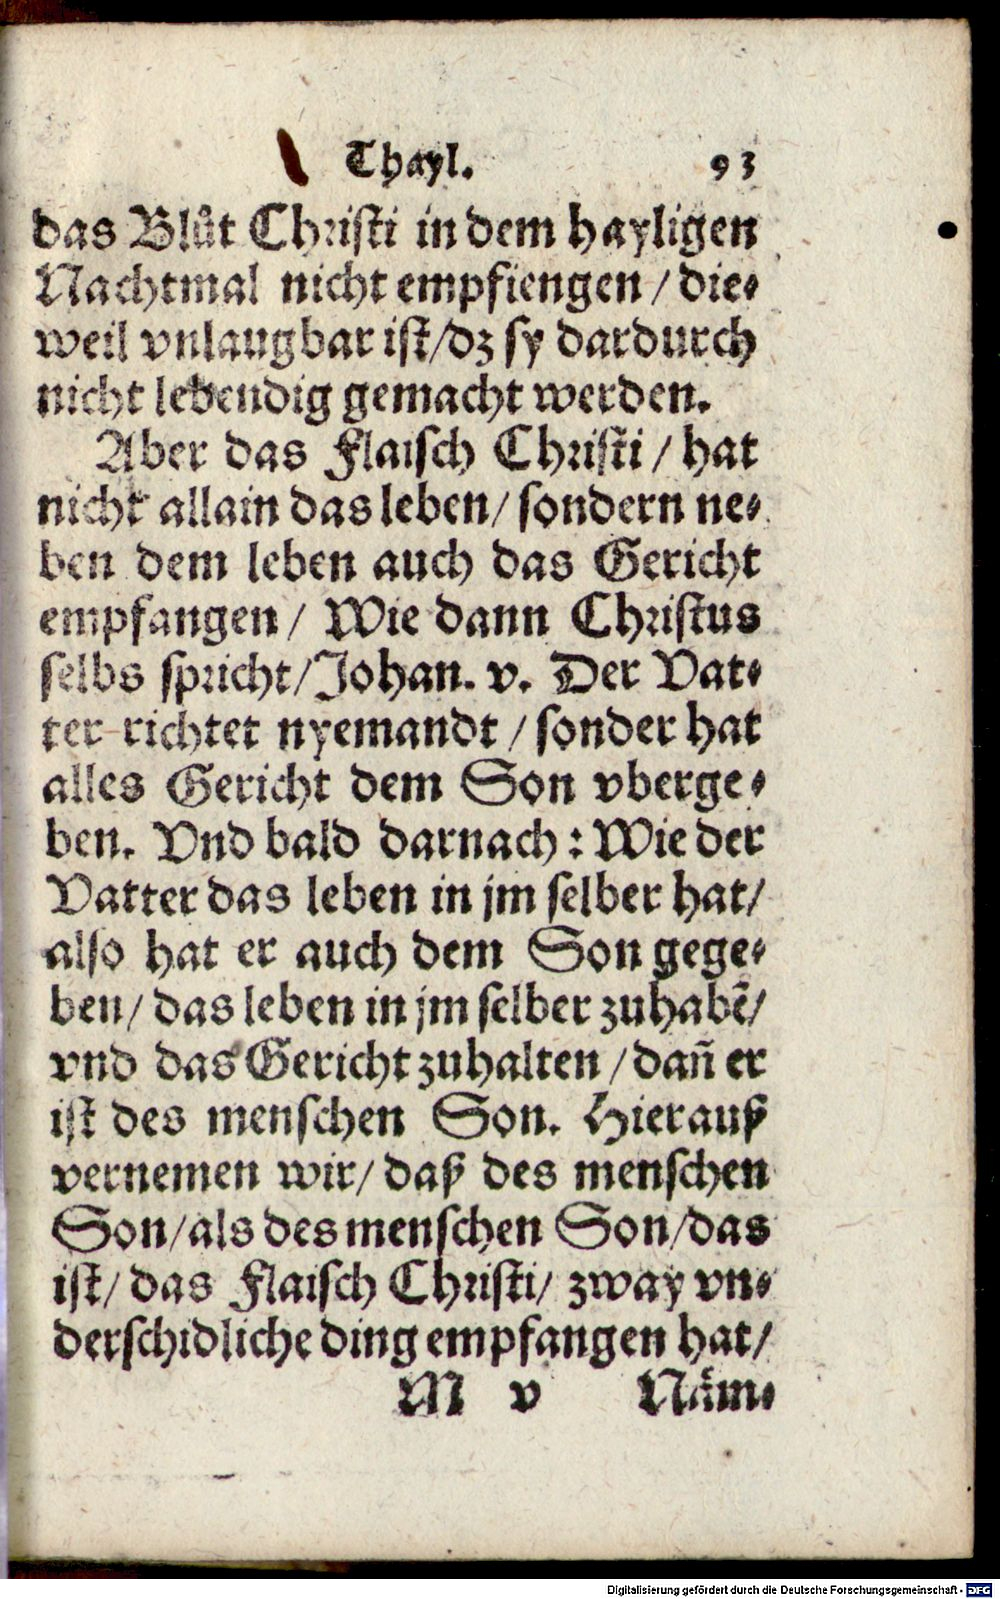 Thayl. 93
das Blůt Christi in dem hayligen
Nachtmal nicht empfiengen / die-
weil vnlaugbar ist / dz sy dardurch
nicht lebendig gemacht werden.
Aber das Flaisch Christi / hat
nicht allain das leben / sondern ne-
ben dem leben auch das Gericht
empfangen / Wie dann Christus
selbs spricht / Johan. v. Der Vat-
ter richtet nyemandt / sonder hat
alles Gericht dem Son vberge-
ben. Vnd bald darnach: Wie der
Vatter das leben in jm selber hat /
also hat er auch dem Son gege-
ben / das leben in jm selber zuhabẽ /
vnd das Gericht zuhalten / dañ er
ist des menschen Son. Hierauß
vernemen wir / daß des menschen
Son / als des menschen Son / das
ist / das Flaisch Christi / zway vn-
derschidliche ding empfangen hat /
M v Nåm-
Digitalisierung gefördert durch die Deutsche Forschungsgemeinschaft - DFG